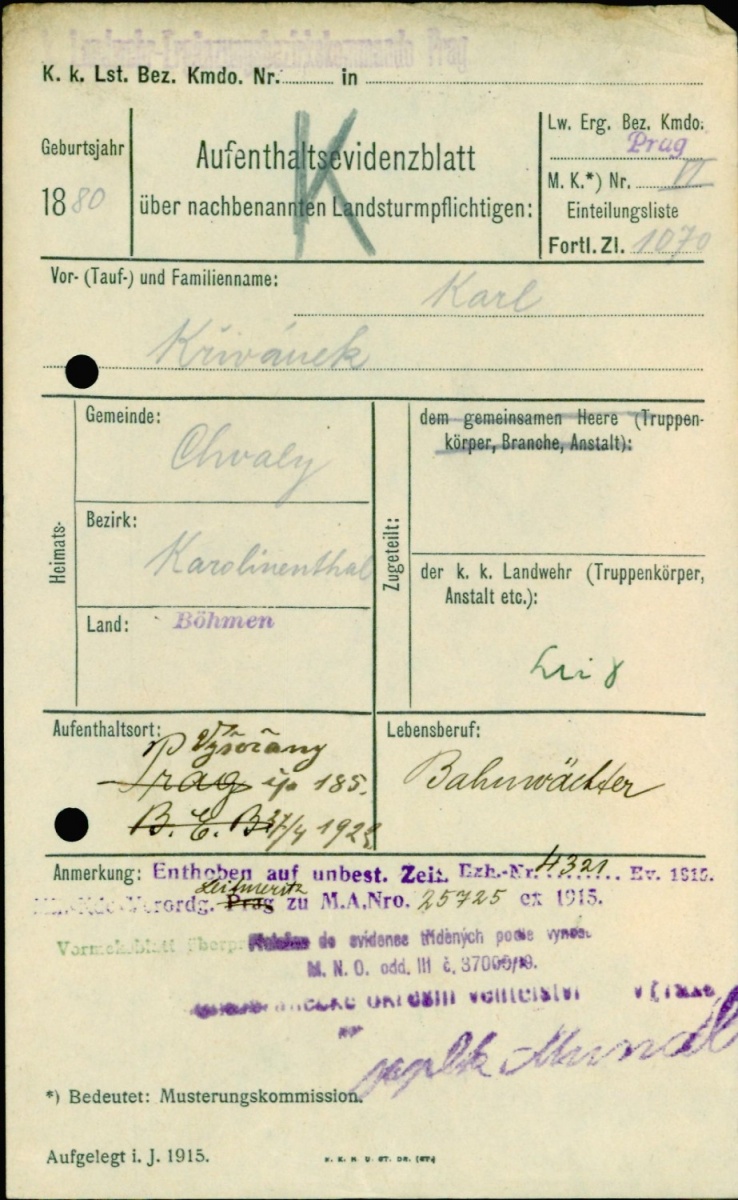 Landwehr-Ergänzungsbezirkskommando Prag
K. k. Lst. Bez. Kmdo. Nr. in
Geburtsjahr
1880
K
Aufenthaltsevidenzblatt
über nachbenannten Landsturmpflichtigen:
Lw. Erg. Bez. Kmdo.
Prag
M. K.*) Nr. VI
Einteilungsliste
Fortl. Zl. 1070
Vor- (Tauf-) und Familienname:
Karl
Křivánek
Heimats-
Gemeinde:
Chvaly
Bezirk:
Karolinenthal
Land: Böhmen
Zugeteilt:
dem gemeinsamen Heere (Truppen-
körper, Branche, Anstalt):
der k. k. Landwehr (Truppenkörper,
Anstalt etc.):
8
Aufenthaltsort:
Vysočany
Prag čp 185.
B. E. B. 192
Lebensberuf:
Bahnwächter
Anmerkung: Enthoben auf unbest. Zeit. Erh.-Nr. 4321 Ev. 1915.
Leitmeritz
Verordg. Prag zu M.A.Nro. 25725 ex 1915.
Vormerkblatt
do evidence tříděných podle vynos.
M. N. O. odd. III č. 37000/19.
okresní velitelství
pplk
*) Bedeutet: Musterungskommission.
Aufgelegt i. J. 1915.